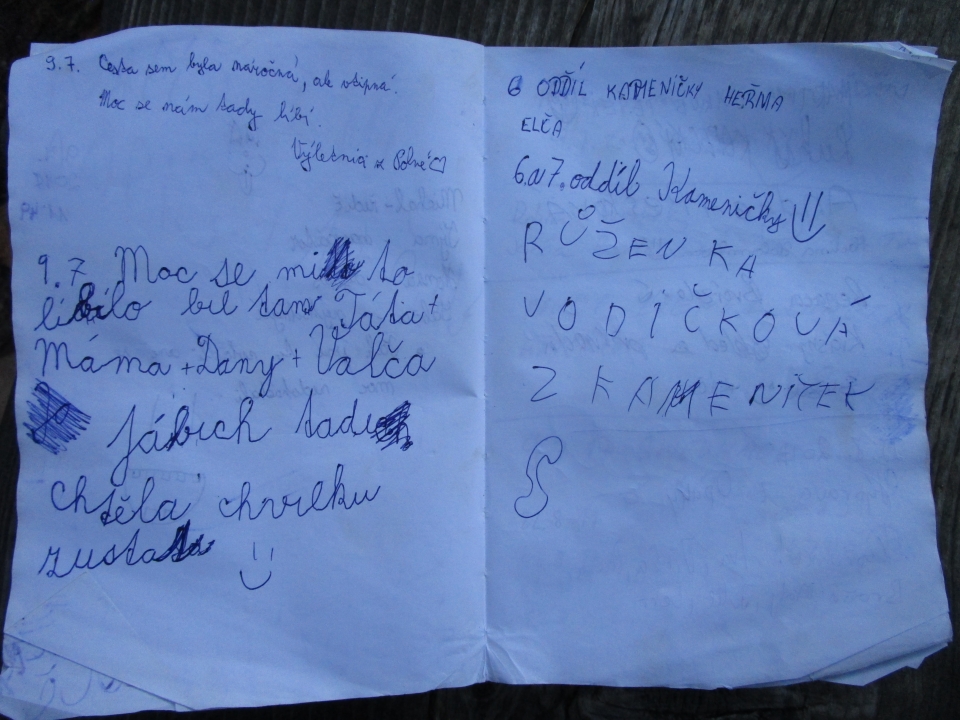 9.7. Cesta sem byla náročná, ale vtipná.
Moc se nám tady líbí.
Výletníci z Polné
9.7 Moc se mi to
líbilo bil tam Táta+
Máma+Dany+Valča
Jábich tadi
chtěla chvilku
zustat
6 ODDÍL KAMENIČKY HEŘMA
ELČA
6. a 7. oddíl Kameničky
RŮŽENKA
VODIČKOVÁ
Z KAMENIČEK